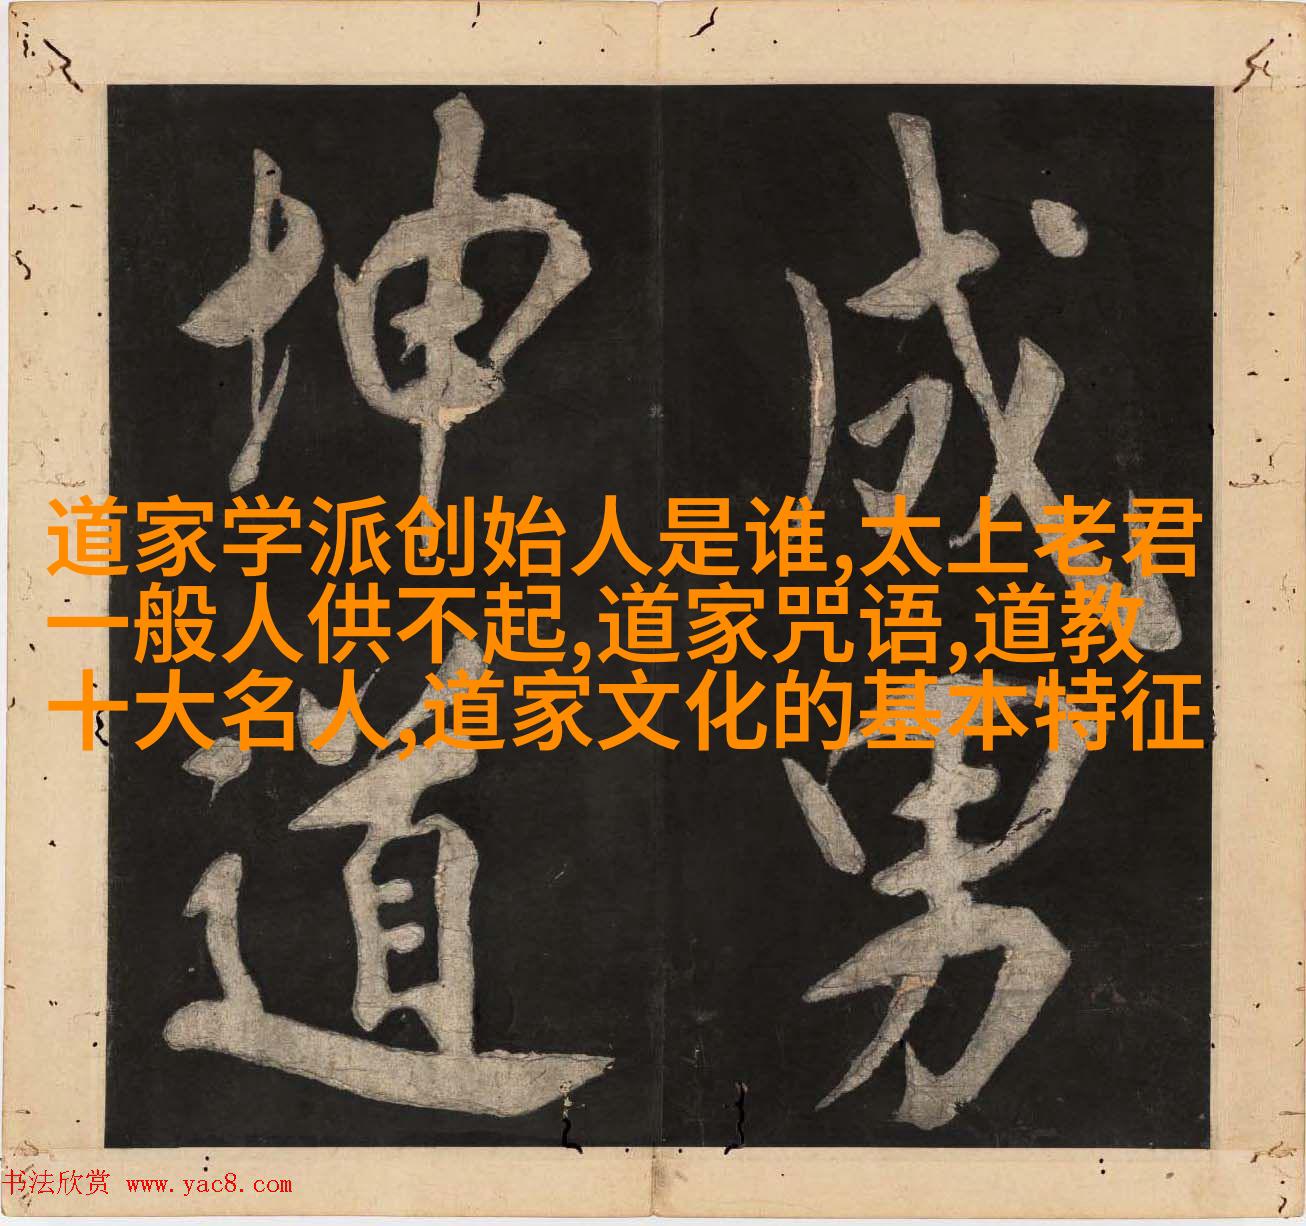 成男
坤道
道家学派创始人是谁,太上老君
一般人供不起,道家咒语,道教
十大名人,道家文化的基本特征
书法欣赏 www.yac8.com